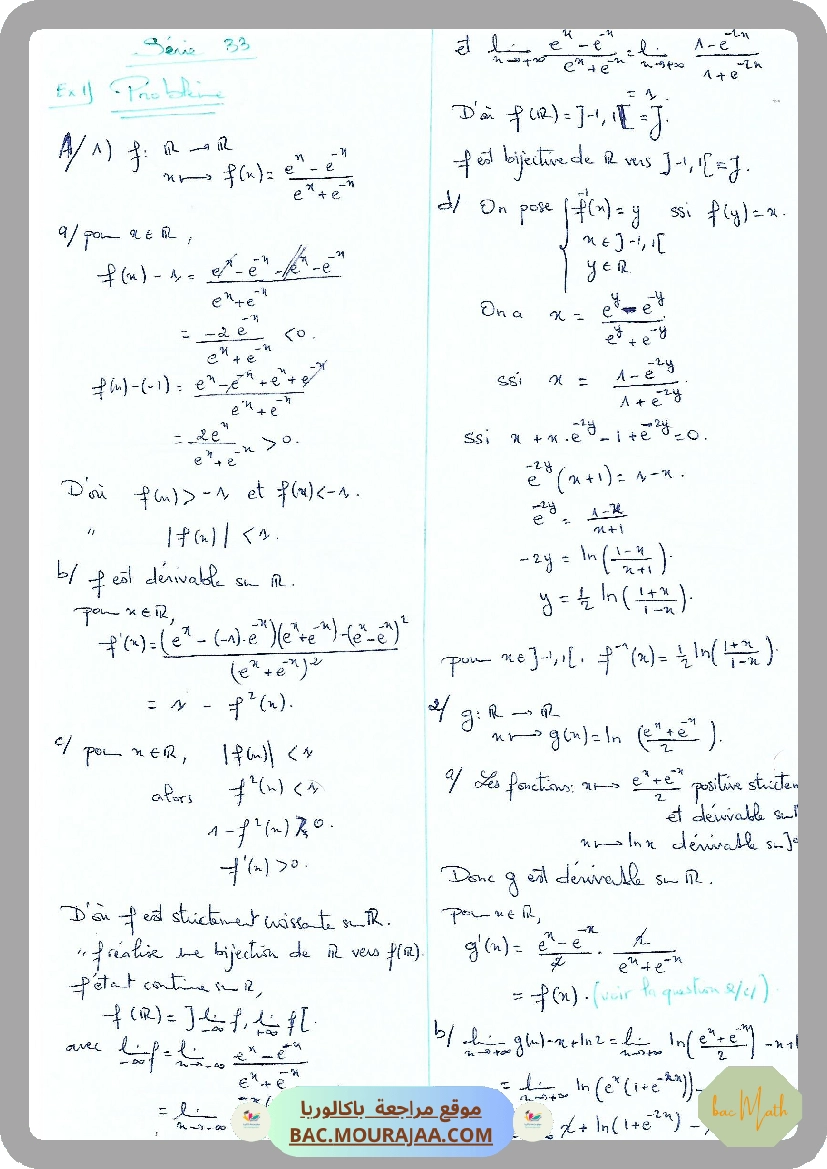 Série 33
Ex 1) Problème
A/ 1) f: ℝ → ℝ
x ↦ f(x) = (e^x - e^-x)/(e^x + e^-x)
a/ pour x ∈ ℝ,
f(x) - 1 = (e^x - e^-x - e^x - e^-x)/(e^x + e^-x)
= (-2e^-x)/(e^x + e^-x) < 0.
f(x) - (-1) = (e^x - e^-x + e^x + e^-x)/(e^x + e^-x)
= 2e^x/(e^x + e^-x) > 0.
D'où f(x) > -1 et f(x) < -1.
" |f(x)| < 1.
b/ f est dérivable sur ℝ.
pour x ∈ ℝ,
f'(x) = ((e^x - (-1).e^-x)(e^x + e^-x) - (e^x - e^-x)^2)/(e^x + e^-x)^2
= 1 - f²(x).
c/ pour x ∈ ℝ, |f(x)| < 1
alors f²(x) < 1
1 - f²(x) > 0.
f'(x) > 0.
D'où f est strictement croissante sur ℝ.
" f réalise une bijection de ℝ vers f(ℝ)
f étant continue sur ℝ,
f(ℝ) = ]lim_-∞ f, lim_+∞ f[.
avec lim_-∞ f = lim_x→-∞ (e^x - e^-x)/(e^x + e^-x)
= lim_x→-∞
et lim_x→+∞ (e^x - e^-x)/(e^x + e^-x) = lim_x→+∞ (1 - e^-2x)/(1 + e^-2x)
= 1.
D'où f(ℝ) = ]-1, 1[ = J.
f est bijective de ℝ vers ]-1, 1[ = J.
d/ On pose { f^-1(x) = y ssi f(y) = x.
x ∈ ]-1, 1[
y ∈ ℝ
On a x = (e^y - e^-y)/(e^y + e^-y)
ssi x = (1 - e^-2y)/(1 + e^-2y)
ssi x + x.e^-2y - 1 + e^-2y = 0.
e^-2y (x+1) = 1 - x.
e^-2y = (1-x)/(x+1)
-2y = ln((1-x)/(x+1)).
y = 1/2 ln((1+x)/(1-x)).
pour x ∈ ]-1, 1[. f^-1(x) = 1/2 ln((1+x)/(1-x)).
2/ g: ℝ → ℝ
x ↦ g(x) = ln((e^x + e^-x)/2).
a/ Les fonctions: x ↦ (e^x + e^-x)/2 positive stricten
et dérivable sur
x ↦ ln x dérivable sur ]0
Donc g est dérivable sur ℝ.
pour x ∈ ℝ,
g'(x) = (e^x - e^-x)/2 . 2/(e^x + e^-x)
= f(x). (voir la question 2/c/)
b/ lim_x→+∞ g(x) - x + ln 2 = lim_x→+∞ ln((e^x + e^-x)/2) - x +
= lim_x→+∞ ln(e^x(1 + e^-2x)) -
x + ln(1 + e^-2x) -
موقع مراجعة باكالوريا
BAC.MOURAJAA.COM
bac Math